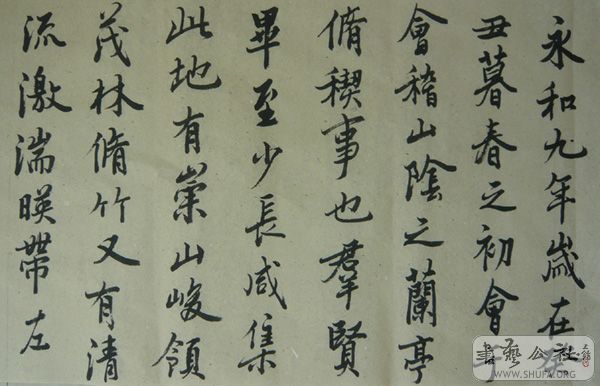 永和九年歲在癸
丑暮春之初會于
會稽山陰之蘭亭
脩稧事也羣賢
畢至少長咸集
此地有崇山峻領
茂林脩竹又有清
流激湍暎帶左
書藝公社
WWW.SHUFA.ORG